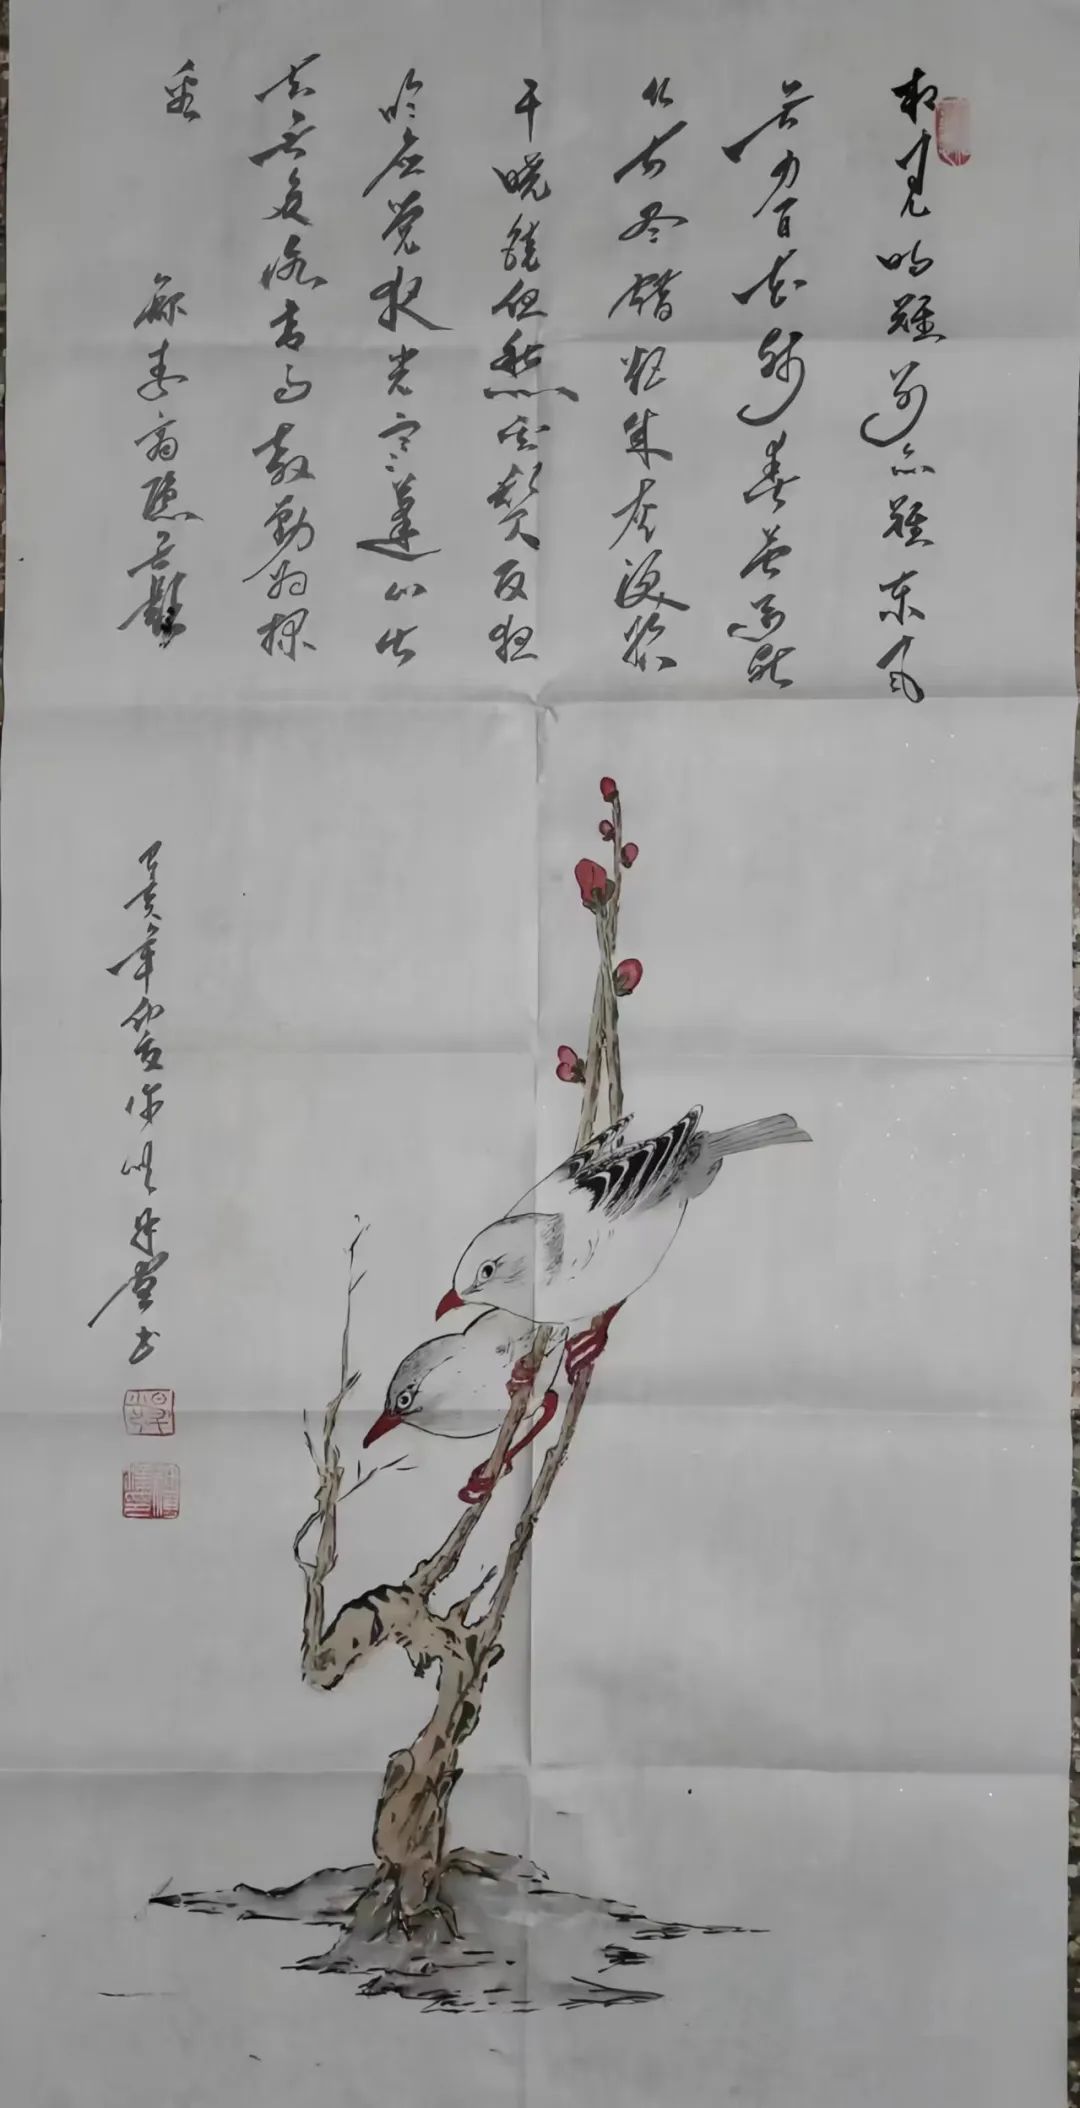 相见时难别亦难东风
无力百花残春蚕到死
丝方尽蜡炬成灰泪始
干晓镜但愁云鬓改夜
吟应觉月光寒蓬山此
去无多路青鸟殷勤为探
看
录李商隐无题
年仲夏 堂书